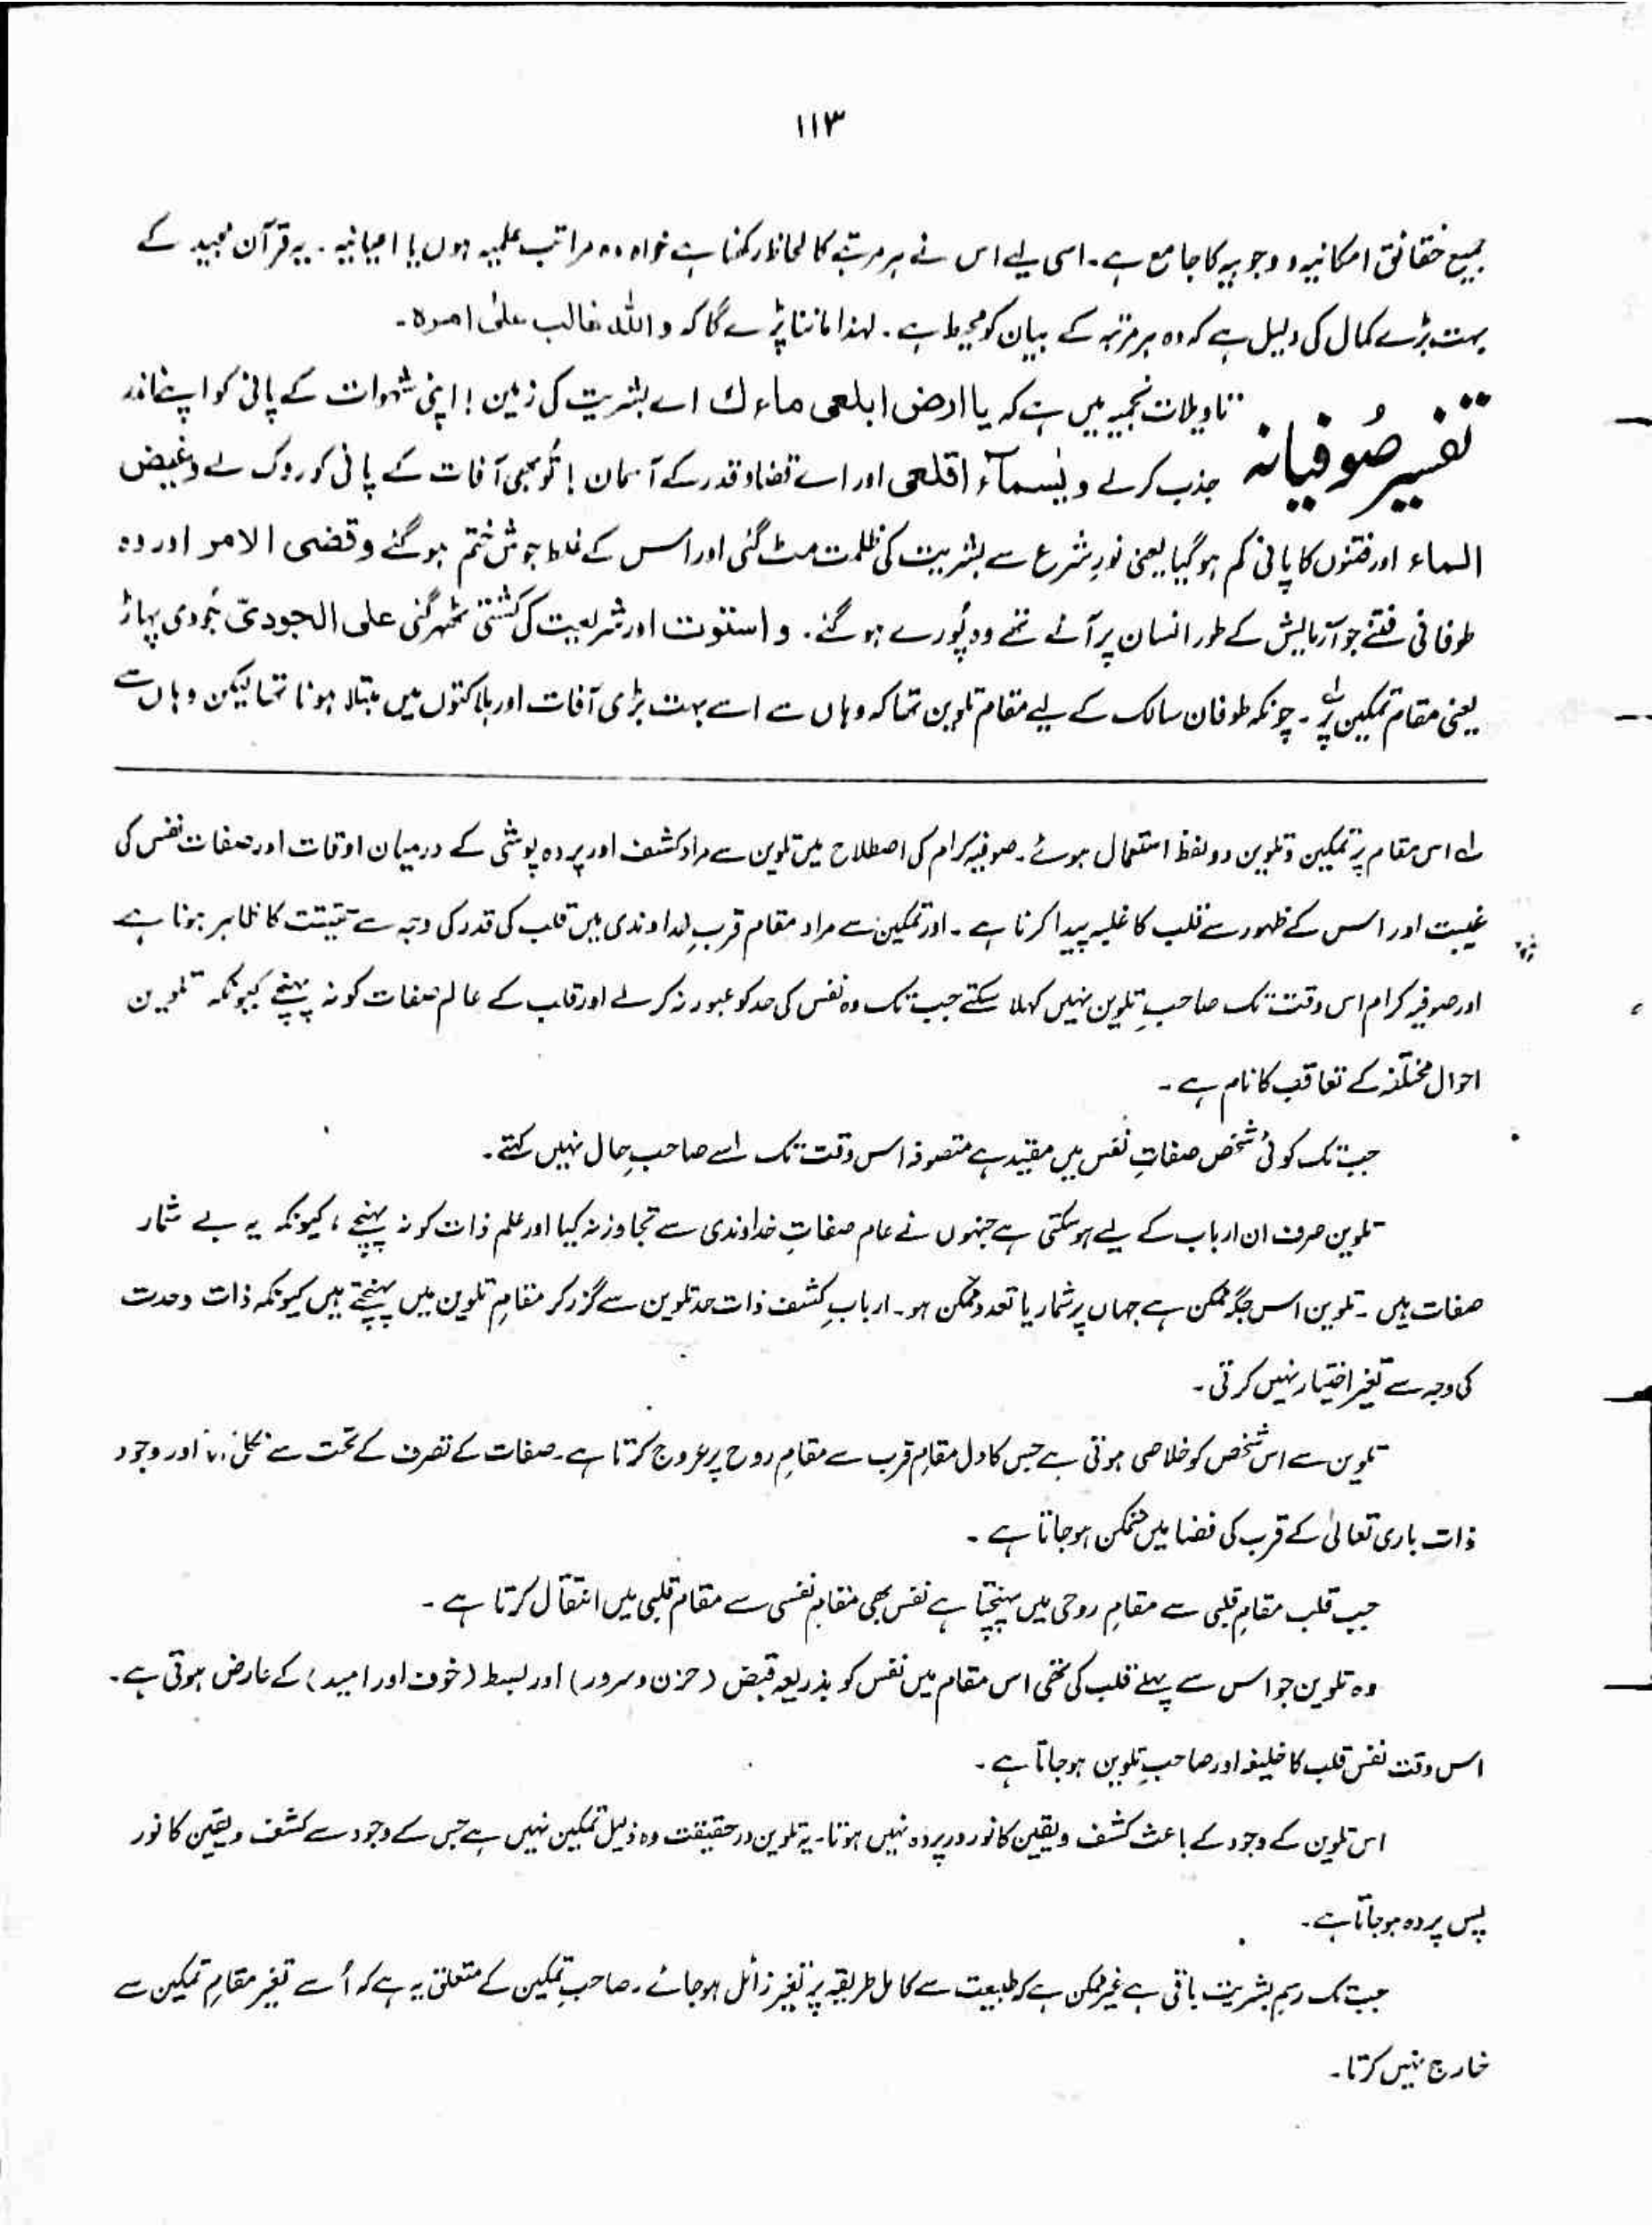 ۱۱۳
جمیع حقائق امکانیہ و وجوبیہ کا جامع ہے۔ اسی لیے اس نے ہر مرتبے کا لحاظ رکھنا ہے خواہ وہ مراتب علمیہ ہوں یا اعیانیہ۔ یہ قرآن مجید کے
بہت بڑے کمال کی دلیل ہے کہ وہ ہر مرتبہ کے بیان کو محیط ہے۔ لہذا ماننا پڑے گا کہ واللہ غالب علیٰ امرہ۔
تفسیر صُوفیانہ
تاویلات نجمیہ میں ہے کہ یا ارض ابلعی ماءك اے بشریت کی زمین! اپنی شہوات کے پانی کو اپنے اندر
جذب کر لے و یٰسماۤء اقلعی اور اے قضا و قدر کے آسمان! تُو بھی آفات کے پانی کو روک لے وغیض
الماء اور فتنوں کا پانی کم ہو گیا یعنی نورِ شرع سے بشریت کی ظلمت مٹ گئی اور اس کے غلط جوش ختم ہو گئے وقضی الامر اور وہ
طوفانی فتنے جو آزمایش کے طور انسان پر آئے تھے وہ پُورے ہو گئے۔ واستوت اور شریعت کی کشتی ٹھہر گئی علی الجودیّ جُودی پہاڑ
یعنی مقام تمکین پر لے۔ چونکہ طوفان سالک کے لیے مقام تلوین تھا کہ وہاں سے اسے بہت بڑی آفات اور ہلاکتوں میں مبتلا ہونا تھا لیکن وہاں سے
لے اس مقام پر تمکین و تلوین دو لفظ استعمال ہوئے۔ صوفیہ کرام کی اصطلاح میں تلوین سے مراد کشف اور پردہ پوشی کے درمیان اوقات اور صفات نفس کی
غیبت اور اس کے ظہور سے قلب کا غلبہ پیدا کرنا ہے۔ اور تمکین سے مراد مقام قربِ خداوندی میں قلب کی قدر کی وجہ سے حقیقت کا ظاہر ہونا ہے
اور صوفیہ کرام اس وقت تک صاحبِ تلوین نہیں کہلا سکتے جب تک وہ نفس کی حد کو عبور نہ کر لے اور قلب کے عالم صفات کو نہ پہنچے کیونکہ تلوین
احوال مختلفہ کے تعاقب کا نام ہے۔
جب تک کوئی شخص صفاتِ نفس میں مقید ہے متصوفہ اس وقت تک اسے صاحبِ حال نہیں کہتے۔
تلوین صرف ان ارباب کے لیے ہو سکتی ہے جنہوں نے عام صفاتِ خداوندی سے تجاوز نہ کیا اور علم ذات کو نہ پہنچے، کیونکہ یہ بے شمار
صفات ہیں۔ تلوین اس جگہ ممکن ہے جہاں پر شمار یا تعدد ممکن ہو۔ اربابِ کشف ذات حد تلوین سے گزر کر مقامِ تلوین میں پہنچتے ہیں کیونکہ ذات وحدت
کی وجہ سے تغیر اختیار نہیں کرتی۔
تلوین سے اس شخص کو خلاصی ہوتی ہے جس کا دل مقامِ قرب سے مقامِ روح پر عروج کرتا ہے۔ صفات کے تصرف کے تحت سے نکل اور وجود
ذات باری تعالیٰ کے قرب کی فضا میں متمکن ہو جاتا ہے۔
جب قلب مقامِ قلبی سے مقامِ روحی میں پہنچتا ہے نفس بھی مقامِ نفسی سے مقام قلبی میں انتقال کرتا ہے۔
وہ تلوین جو اس سے پہلے قلب کی تھی اس مقام میں نفس کو بذریعہ قبض (حزن و سرور) اور بسط (خوف اور امید) کے عارض ہوتی ہے۔
اس وقت نفس قلب کا خلیفہ اور صاحبِ تلوین ہو جاتا ہے۔
اس تلوین کے وجود کے باعث کشف و یقین کا نور در پردہ نہیں ہوتا۔ یہ تلوین درحقیقت وہ ذلیل تمکین نہیں ہے جس کے وجود سے کشف و یقین کا نور
پس پردہ ہو جاتا ہے۔
جب تک رسم بشریت باقی ہے غیر ممکن ہے کہ طبیعت سے کامل طریقہ پر تغیر زائل ہو جائے۔ صاحبِ تمکین کے متعلق یہ ہے کہ اُسے تغیر مقامِ تمکین سے
خارج نہیں کرتا۔